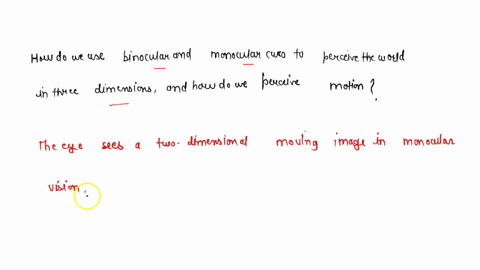 How do we use binocular and monocular cues to perceive the world
in three dimensions, and how do we perceive motion?
The eye sees a two-dimensional moving image in monocular
vision.